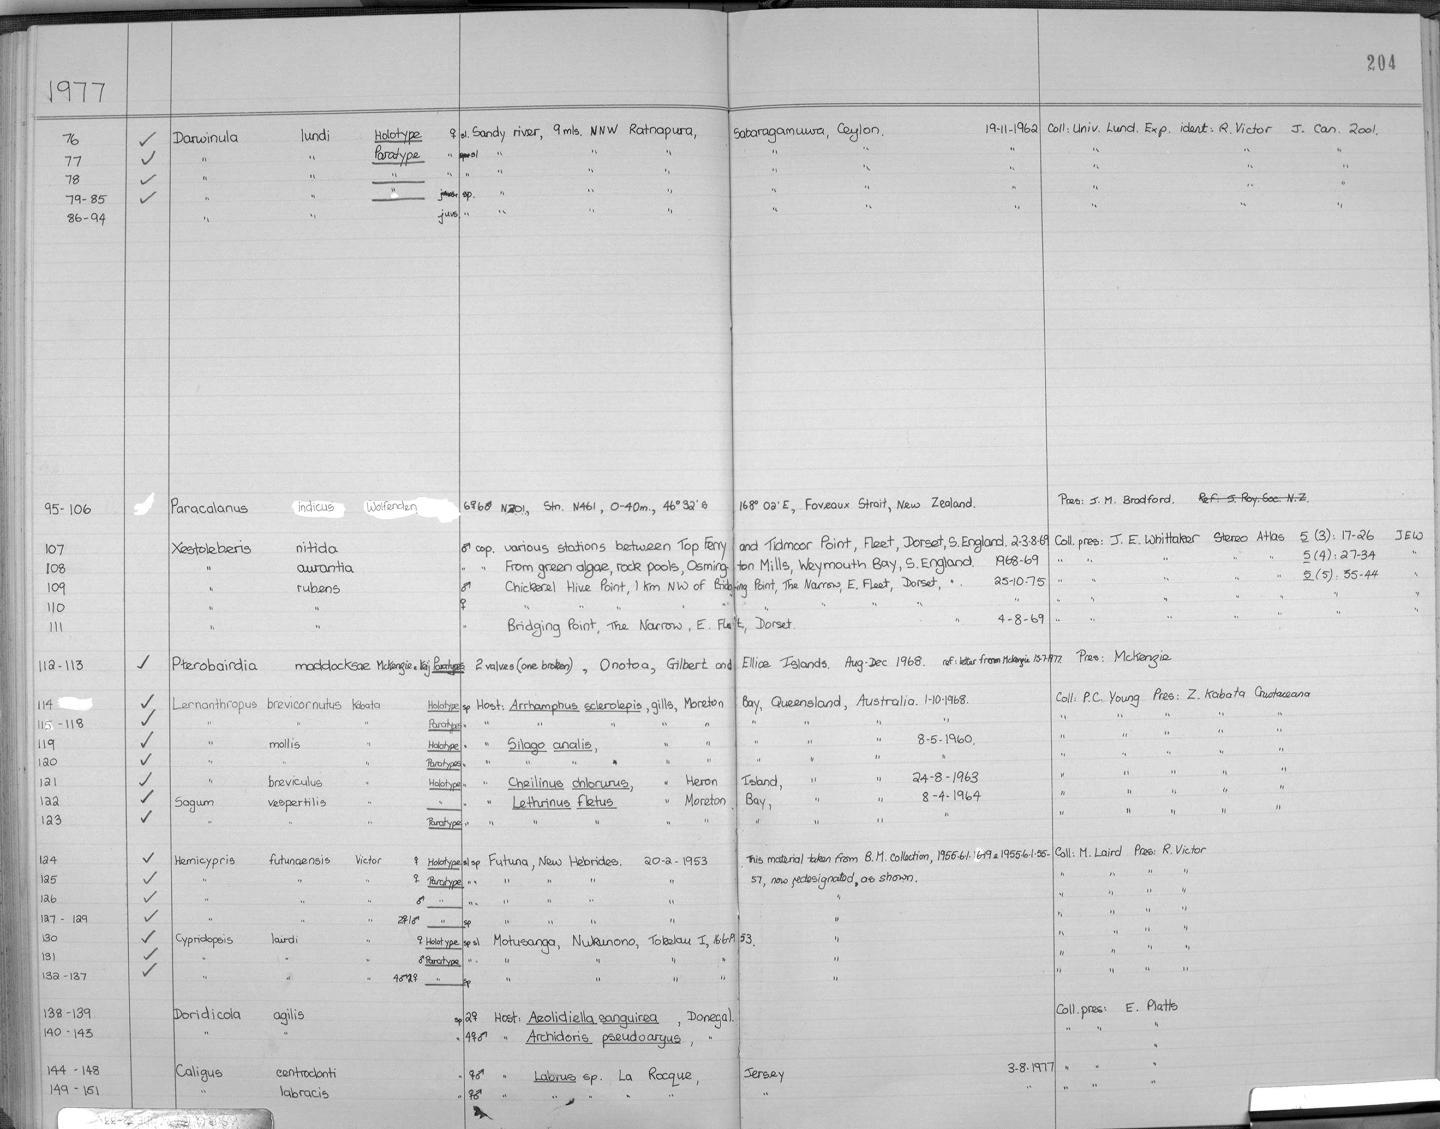 204
1977
76 ✓ Darwinula lundi Holotype ♀ sl. Sandy river, 9 mls. NNW Ratnapura, Sabaragamuwa, Ceylon. 19-11-1962 Coll: Univ. Lund. Exp. ident: R. Victor J. Can. Zool.
77 ✓ " " Paratype " sl " " " " " " " " "
78 ✓ " " " " " " " " " " " " " "
79-85 ✓ " " " sp. " " " " " " " " "
86-94 " " juvs " " " " " " " " " "
95-106 Paracalanus indicus Wolfenden 6♀6♂ NZOI, Stn. N461, 0-40m., 46° 32' S 168° 02' E, Foveaux Strait, New Zealand. Pres: J. M. Bradford. Ref. J. Roy. Soc. N.Z.
107 Xestoleberis nitida ♂ cop. various stations between Top Ferry and Tidmoor Point, Fleet, Dorset, S. England. 2-3-8-69 Coll. pres: J. E. Whittaker Stereo Atlas 5 (3): 17-26 JEW
108 " aurantia " " From green algae, rock pools, Osmington Mills, Weymouth Bay, S. England. 1968-69 " " " " 5 (4): 27-34 "
109 " rubens ♂ Chickerel Hive Point, 1 km NW of Bridging Point, The Narrow, E. Fleet, Dorset, " . 25-10-75 " " " " 5 (5): 35-44 "
110 " " ♀ " " " " " " " " " " " " " " "
111 " " " Bridging Point, The Narrow, E. Fleet, Dorset. " 4-8-69 " " " " " "
112-113 ✓ Pterobairdia maddocksae McKenzie & Keij Paratypes 2 valves (one broken), Onotoa, Gilbert and Ellice Islands. Aug-Dec 1968. ref: letter from McKenzie 13-7-1977 Pres: McKenzie
114 ✓ Lernanthropus brevicornutus Kabata Holotype sp Host: Arrhamphus sclerolepis, gills, Moreton Bay, Queensland, Australia. 1-10-1968. Coll: P.C. Young Pres: Z. Kabata Crustaceana
115-118 ✓ " " " Paratypes " " " " " " " " " " " " " " "
119 ✓ " mollis " Holotype " " Silago analis, " " " " " 8-5-1960. " " " " "
120 ✓ " " " Paratypes " " " " " " " " " " " " " " "
121 ✓ " breviculus " Holotype " " Cheilinus chlorurus, " Heron Island, " " 24-8-1963 " " " " "
122 ✓ Sagum vespertilis " " " " Lethrinus fletus " Moreton Bay, " " 8-4-1964 " " " " "
123 ✓ " " " Paratype " " " " " " " " " " " " " " "
124 ✓ Hemicypris futunaensis Victor ♀ Holotype sl sp Futuna, New Hebrides. 20-2-1953 This material taken from B.M. collection, 1955-6-1- & 1955-6-1-55- Coll: M. Laird Pres: R. Victor
125 ✓ " " " ♀ Paratype " " " " " " 57, now redesignated, as shown. " " " "
126 ✓ " " " ♂ " " " " " " " " " " " "
127-129 ✓ " " " 2♀1♂ " sp " " " " " " " " "
130 ✓ Cypridopsis lairdi " ♀ Holotype sp sl Motusanga, Nukunono, Tokelau I, 53. " " " " "
131 ✓ " " " ♂ Paratype " " " " " " " " " " "
132-137 ✓ " " " 4♂2♀ " sp " " " " " " " " "
138-139 Doridicola agilis sp 2♀ Host: Aeolidiella sanguinea, Donegal. Coll. pres: E. Platts
140-143 " " " 4♀♂ " Archidoris pseudoargus, " " " "
144-148 Caligus centrodonti " ♀♂ " Labrus sp. La Rocque, Jersey 3-8-1977 " " "
149-161 " labracis " ♀♂ " " " " " " " " " "